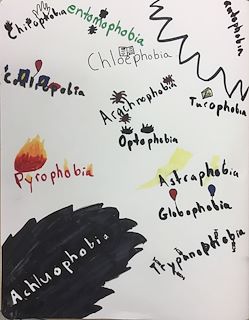 Chirophobia
entomophobia
Chloephobia
Coulrophobia
Arachrophobia
Turophobia
Optophobia
Pyrophobia
Astraphobia
Globophobia
Trypanophobia
Achluophobia